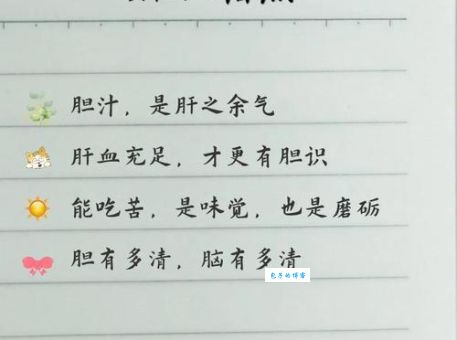 胆汁，是肝之余气
肝血充足，才更有胆识
能吃苦，是味觉，也是磨砺
胆有多清，脑有多清
包子的博客